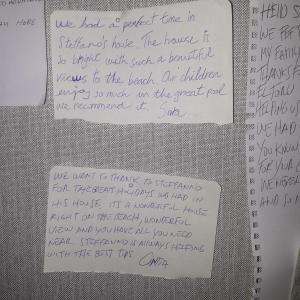 We had a perfect time in
Steffano's house. The house is
so bright with such a beautiful
views to the beach. Our children
enjoy so much in the great pool
we recommend it.
WE WANT TO THANK TO STEFFANNO
FOR THE GREAT HOLIDAYS WE HAD IN
HIS HOUSE. IT'S A WONDERFUL HOUSE
RIGHT ON THE BEACH, WONDERFUL
VIEW AND YOU HAVE ALL YOU NEED
NEAR. STEFFANNO IS ALWAYS HELPING
WITH THE BEST TIPS
MORE
MY FAMIL
THANKS F
HELPING U
WE HAD
YOU KNOW
FOR YOUR
WE NEVER
AND SO M